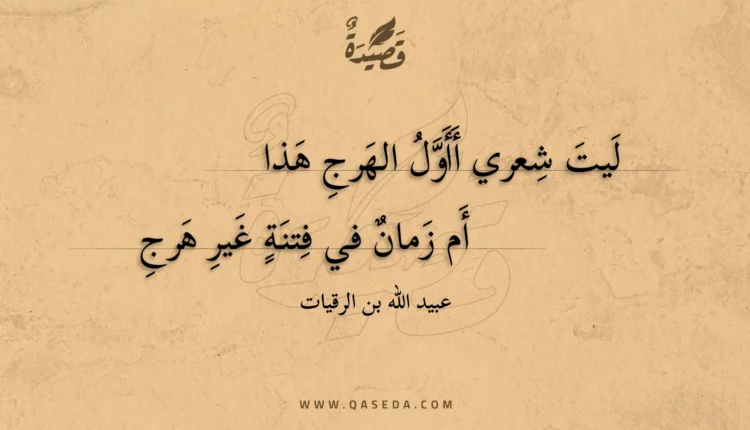 قَصِيْدَةٌ
لَيتَ شِعري أَأَوَّلُ الهَرجِ هَذا
أَم زَمانٌ في فِتنَةٍ غَيرِ هَرجِ
عبيد الله بن الرقيات
WWW.QASEDA.COM